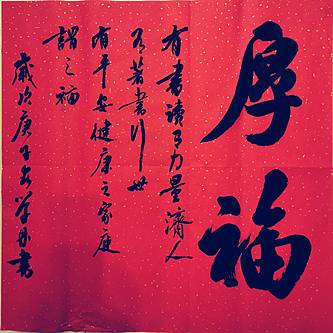 厚福
有書讀有力量濟人
有著書行世
有平安健康之家庭
謂之福
歲次庚子書